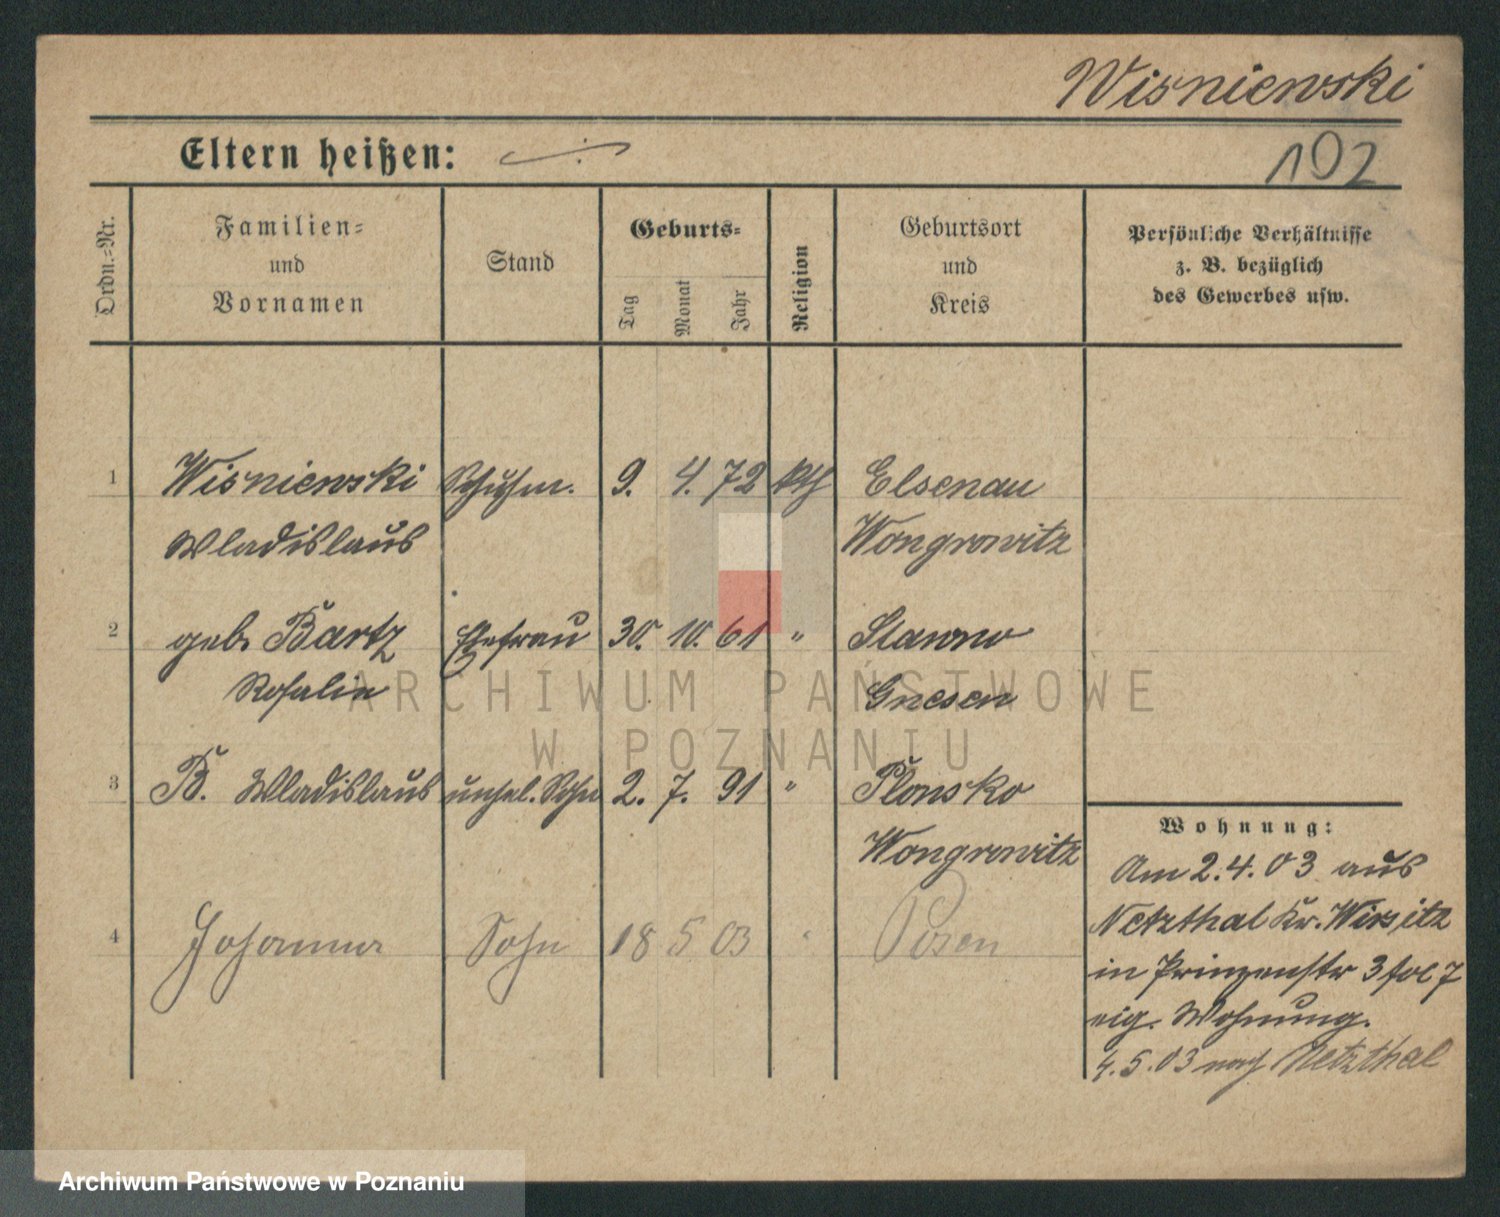 Wisniewski
Eltern heißen: ·/·
192
Ordn.-Nr.
Familien-
und
Vornamen
Stand
Geburts-
Tag
Monat
Jahr
Religion
Geburtsort
und
Kreis
Persönliche Verhältnisse
z. B. bezüglich
des Gewerbes usw.
1 Wisniewski Schuhm. 9. 4. 72 kth Elsenau
Wladislaus Wongrowitz
2 geb. Bartz Ehefrau 30. 10. 61 " Slawno
Rosalie Gnesen
3 B. Wladislaus unehel. Sohn 2. 7. 91 " Plonsko
Wongrowitz
4 Johannes Sohn 18 5 03 " Posen
Wohnung:
Am 2.4.03 aus
Netzthal Kr. Wirsitz
in Prinzenstr 3 fol 7
eig. Wohnung.
4.5.03 nach Netzthal
ARCHIWUM PAŃSTWOWE
W POZNANIU
Archiwum Państwowe w Poznaniu